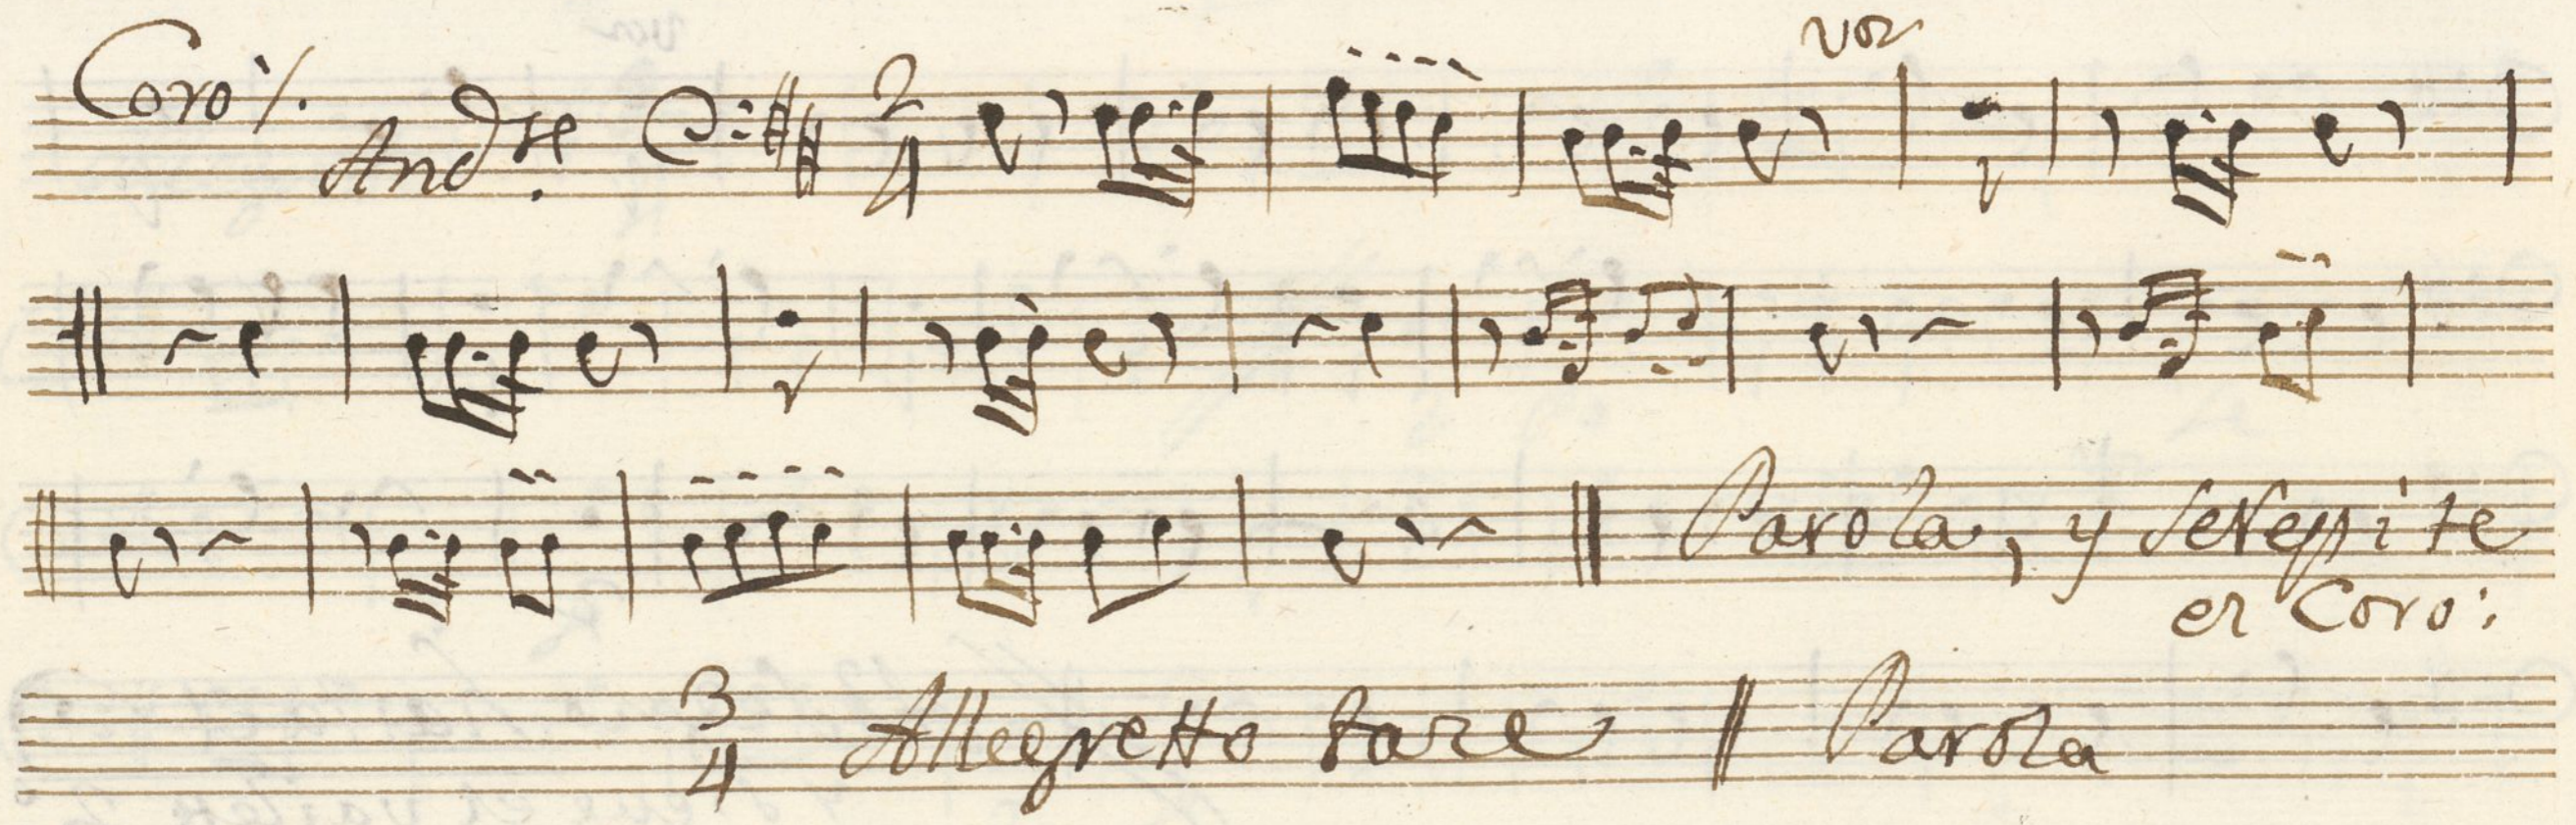 voz
Coro /.
And.te 2/4
Parola, y se Reppite
el Coro:
3/4 Allegretto taze // Parola